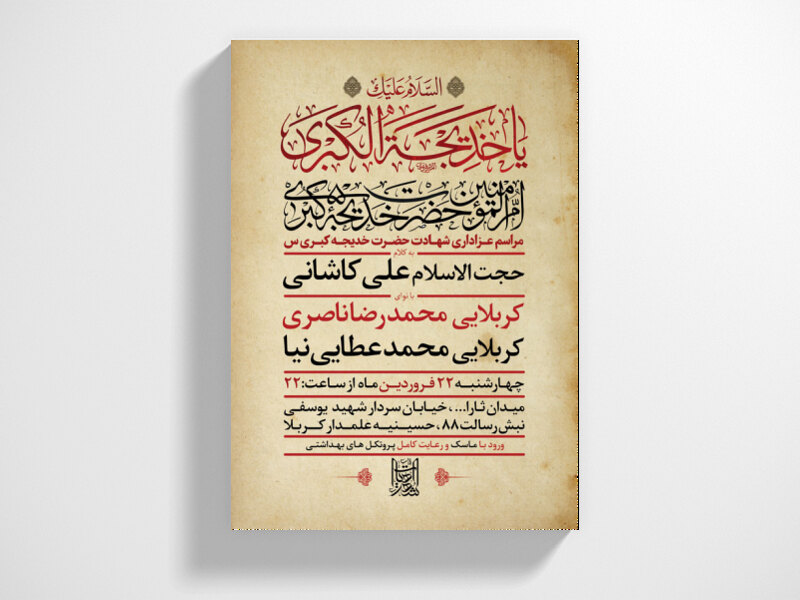 السَّلامُ عَلَیْكِ
یا خَدیجَةَ الْکُبریٰ
اُمّ المؤمنین حضرت خدیجه کبری
مراسم عزاداری شهادت حضرت خدیجه کبری س
به کلام
حجت الاسلام علی کاشانی
با نوای
کربلایی محمدرضا ناصری
کربلایی محمد عطایی نیا
چهارشنبه ۲۲ فروردین ماه از ساعت: ۲۲
میدان ثارا... ، خیابان سردار شهید یوسفی
نبش رسالت ۸۸ ، حسینیه علمدار کربلا
ورود با ماسک و رعایت کامل پروتکل های بهداشتی